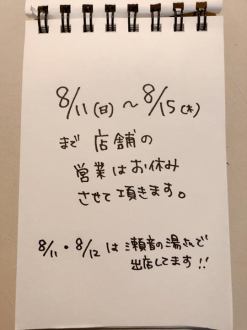 8/11(日)〜8/15(木)
まで 店舗の
営業はお休み
させて頂きます。
8/11・8/12 は 瀬音の湯さんで
出店してます!!